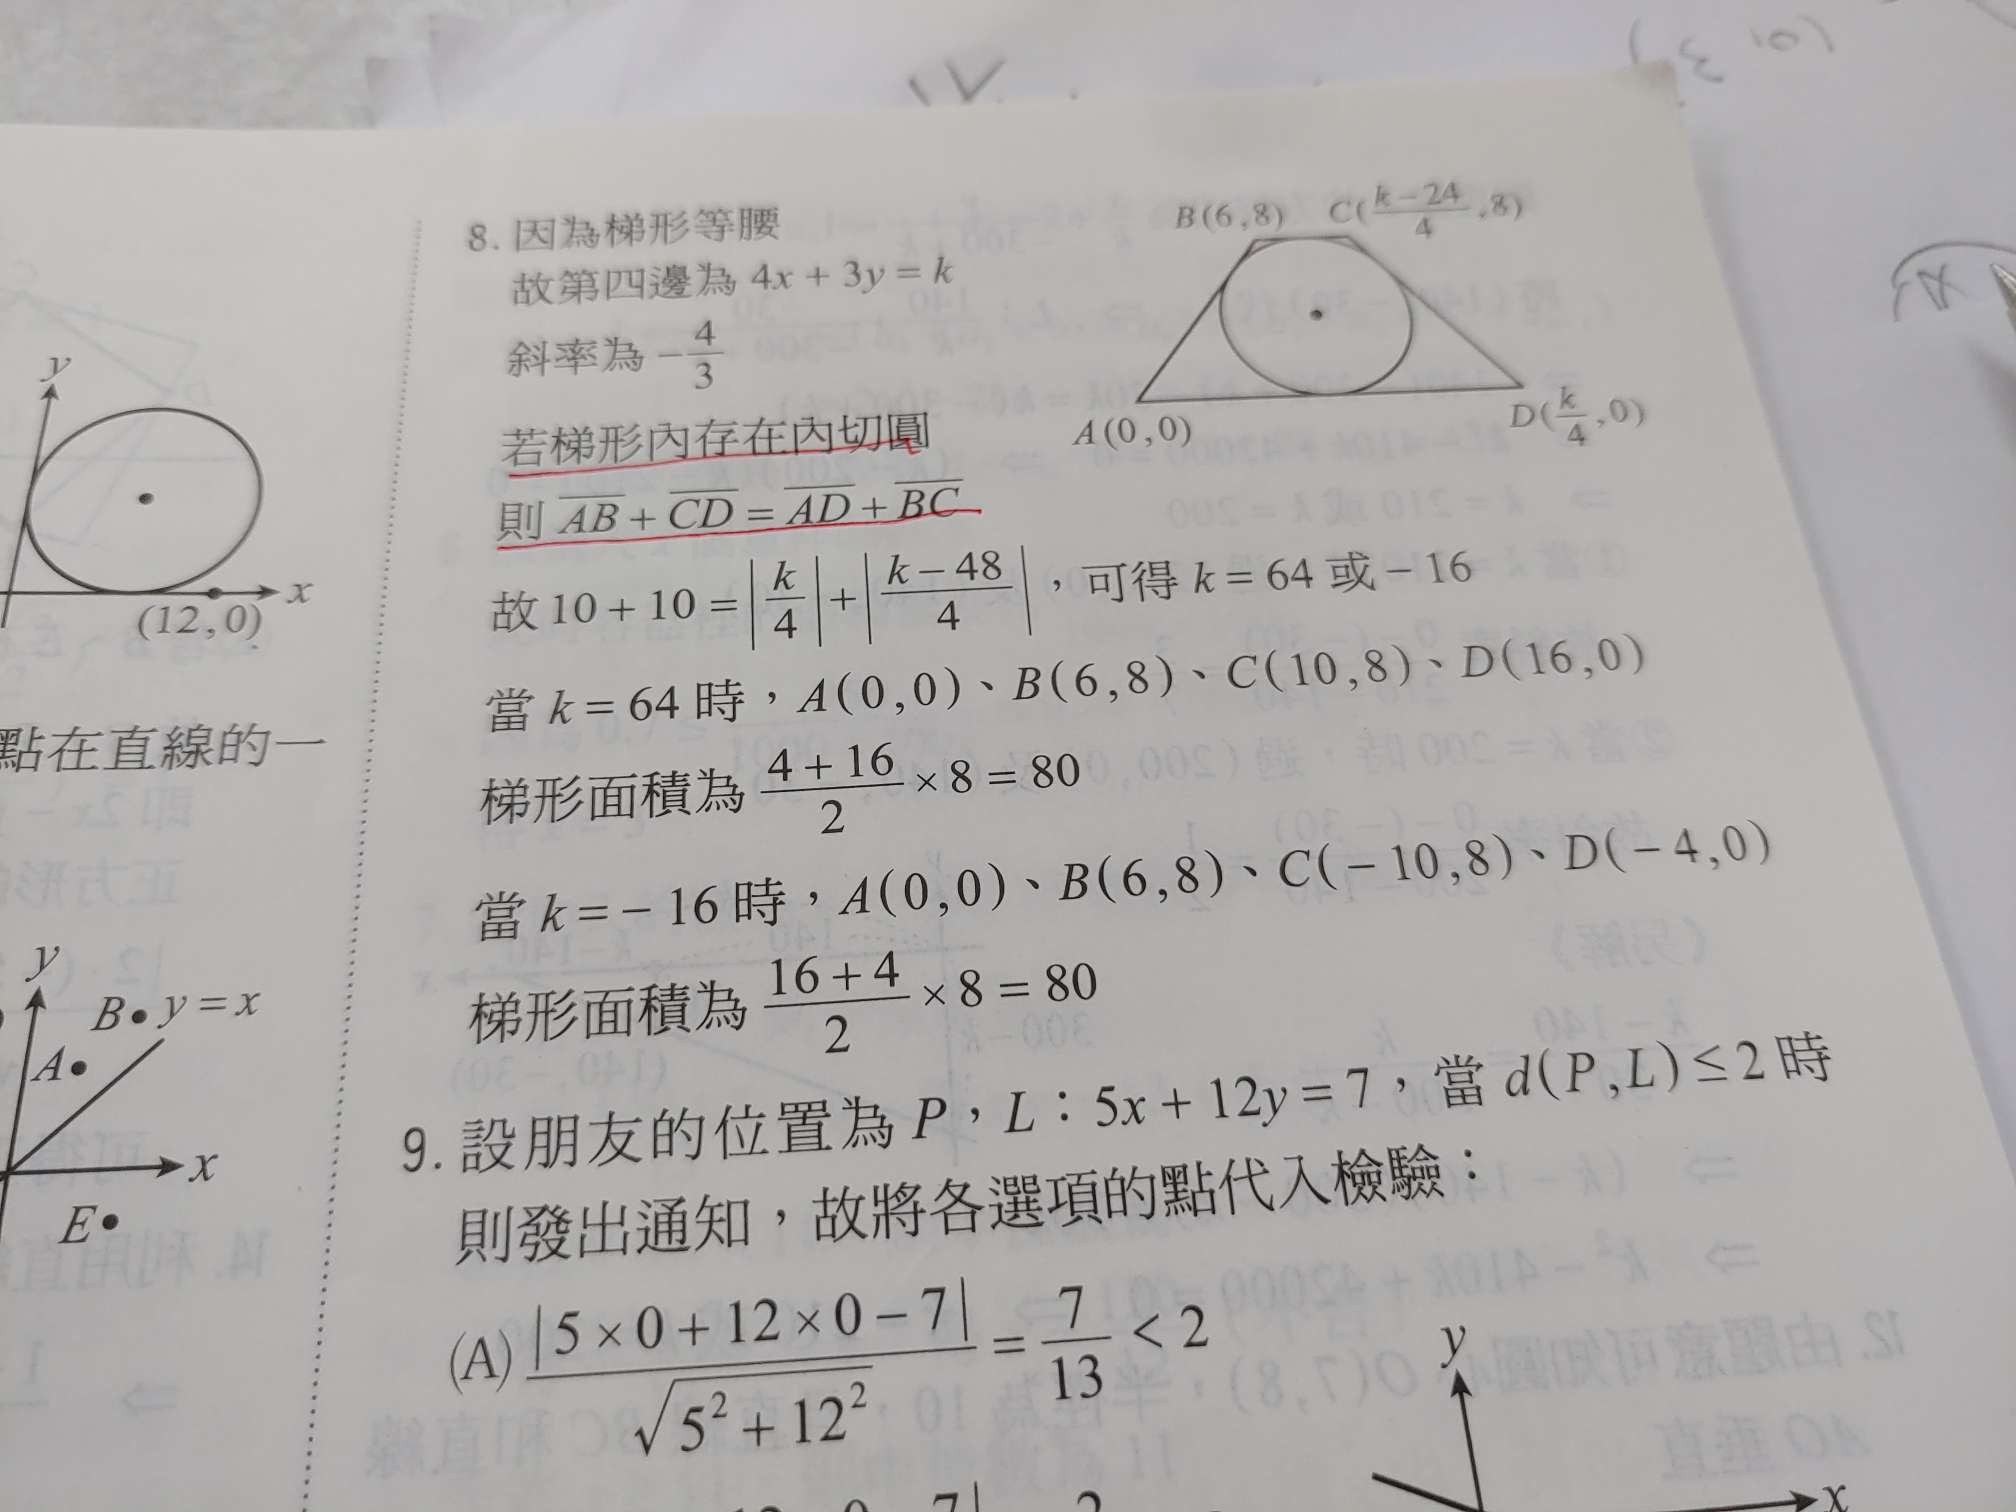 8. 因為梯形等腰
故第四邊為 4x + 3y = k
斜率為 -4/3
若梯形內存在內切圓
則 AB + CD = AD + BC
B(6,8) C((k-24)/4,8)
A(0,0) D(k/4,0)
故 10 + 10 = |k/4| + |(k-48)/4|，可得 k = 64 或 -16
當 k = 64 時，A(0,0)、B(6,8)、C(10,8)、D(16,0)
梯形面積為 (4+16)/2 × 8 = 80
當 k = -16 時，A(0,0)、B(6,8)、C(-10,8)、D(-4,0)
梯形面積為 (16+4)/2 × 8 = 80
9. 設朋友的位置為 P，L：5x + 12y = 7，當 d(P,L) ≤ 2 時
則發出通知，故將各選項的點代入檢驗：
(A) |5×0+12×0-7|/√(5²+12²) = 7/13 < 2
y
x
y
x
(12,0)
點在直線的一
y
B y = x
A
x
E